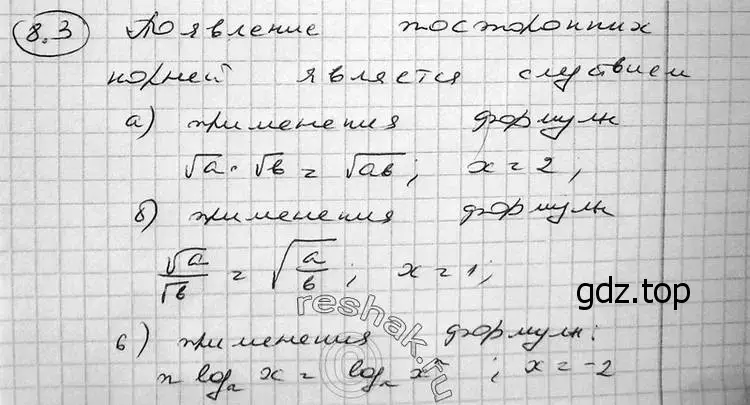 8.3 Появление посторонних
корней является следствием
а) применения формулы
√a · √b = √ab; x = 2;
б) применения формулы
√a/√b = √(a/b); x = 1;
gdz.top
reshak.ru
в) применения формулы:
n logₐ x = logₐ xⁿ; x = -2